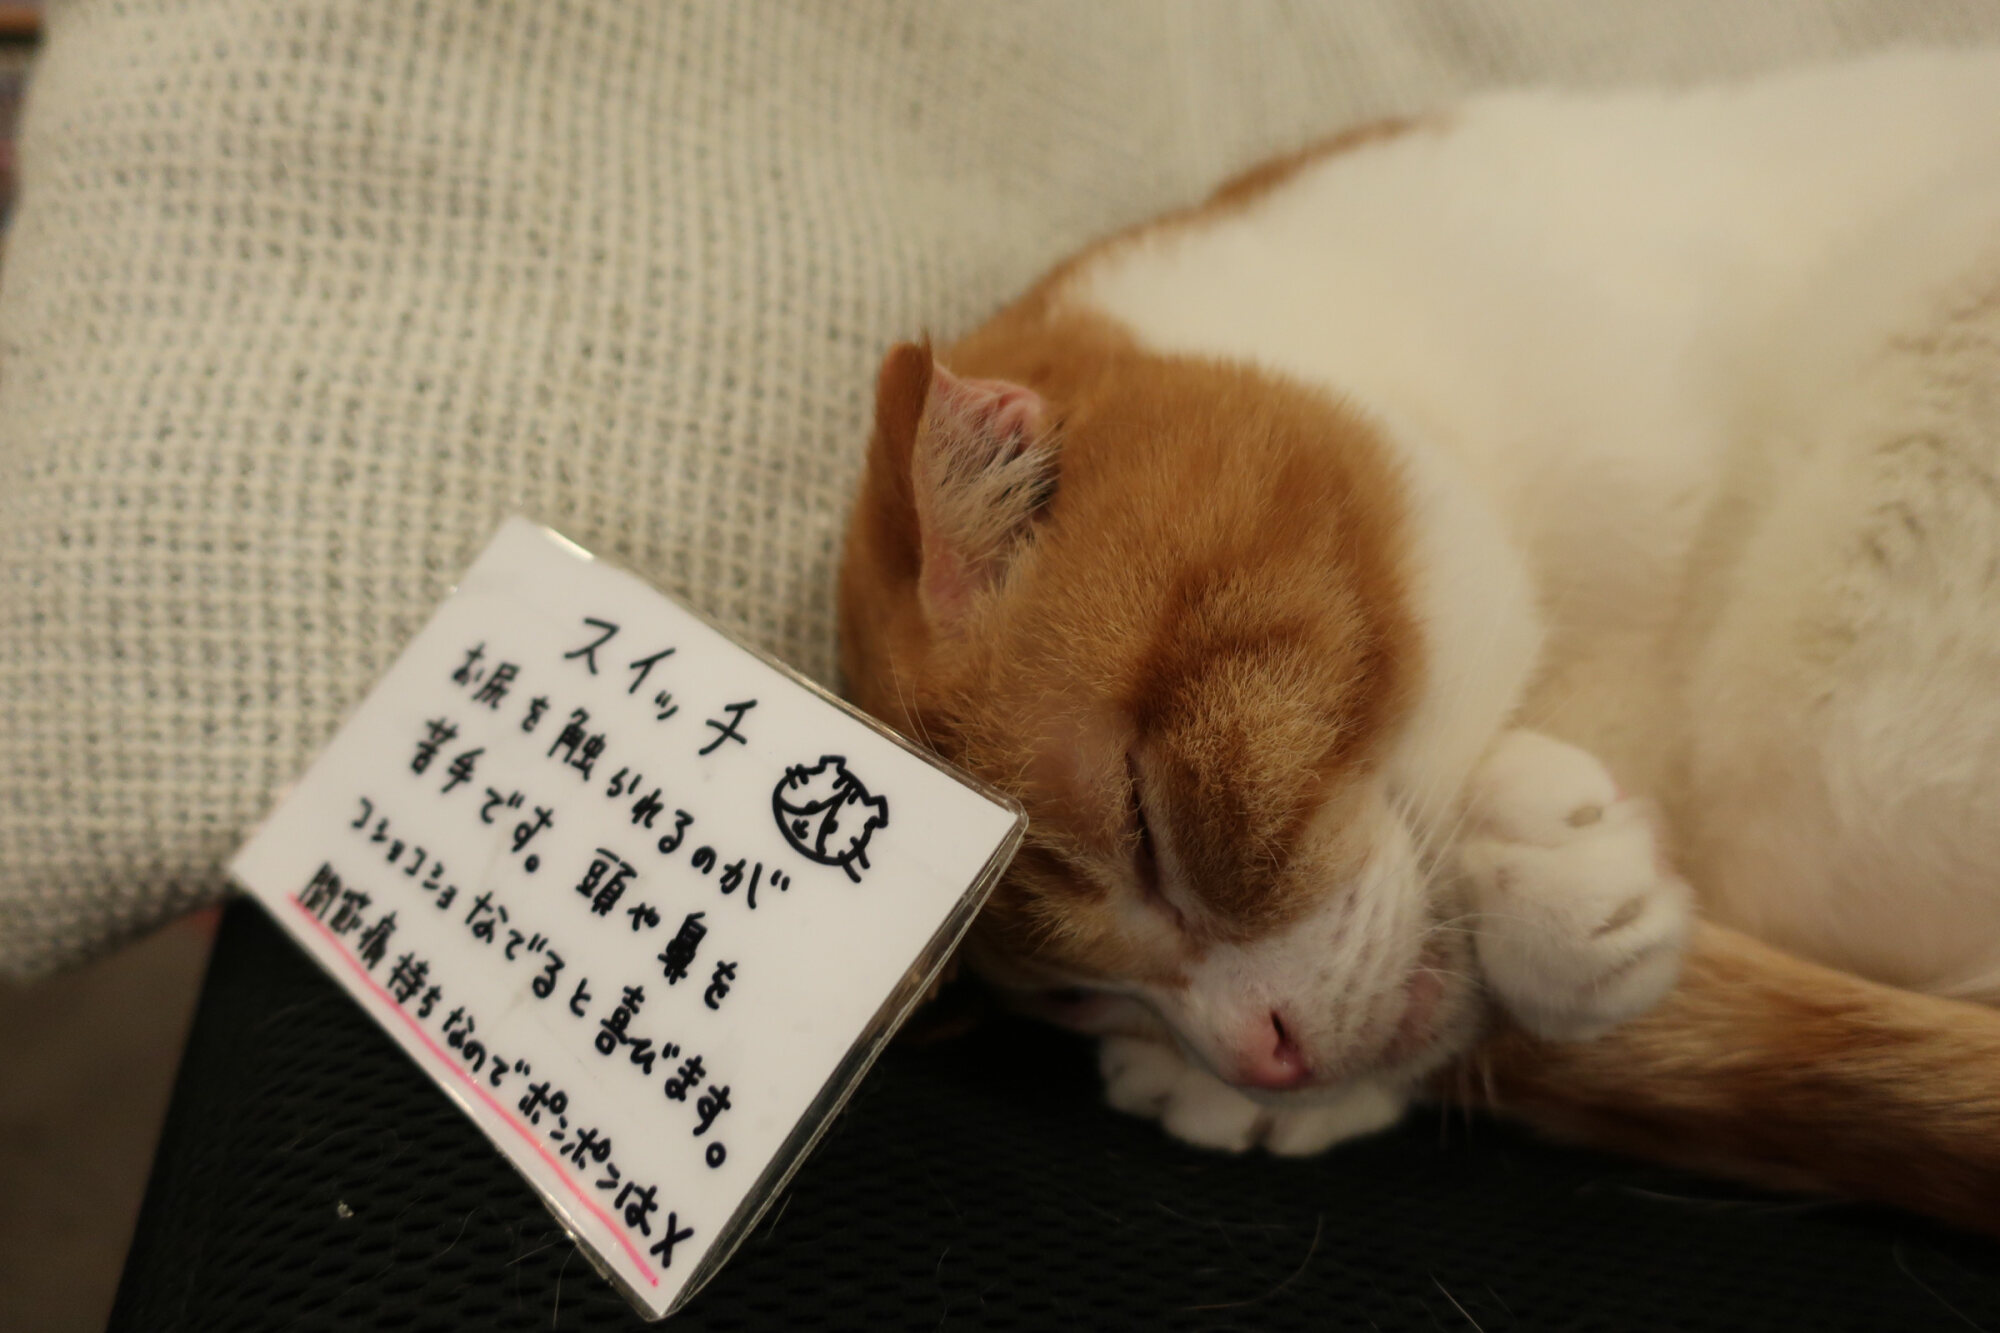 スイッチ
お尻を触られるのが
苦手です。頭や鼻を
コショコショなでると喜びます。
関節痛持ちなのでポンポンは×